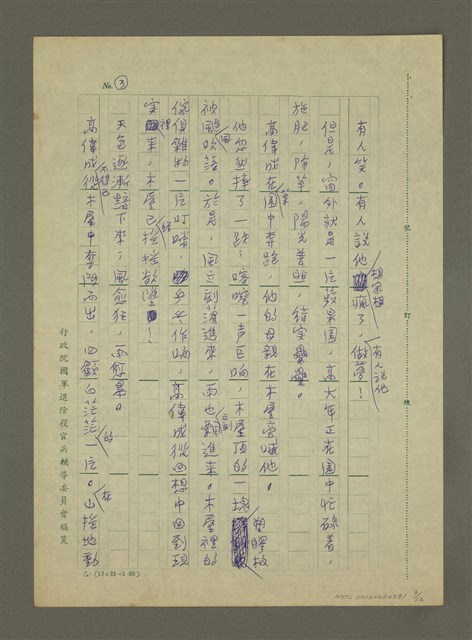 No. 3
有人笑。有人說他想家想瘋了，有人說他做夢！
但是，窗外就是一片蘋果園，高大年正在園中忙碌着，
施肥，除草，陽光普照，結實纍纍。
高偉成在果園中奔跑，他的母親在木屋旁喊他。
他忽然摔了一跤；喀嚓一聲巨响，木屋頂的一塊塑膠板
被風吹落。於是，風立刻灌進來，雨也立刻飄進來。木屋裡的
傢俱雜物一片叮噹，乒乓作响，高偉成從回想中回到現
實裡來，木屋已經搖搖欲墜！
天色逐漸黯下來，風愈狂，雨愈暴。
高偉成不得已從木屋中奪門而出，四顧白茫茫的一片。山在搖地動
行政院國軍退除役官兵輔導委員會稿箋
裝 訂 線
乙(12×25=300)
2/12